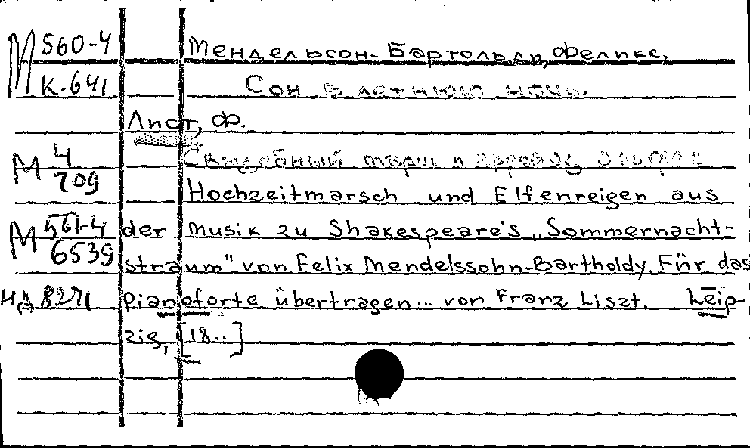 М 560-4 Мендельсон-Бартольди, Феликс.
К-641 Сон в летнюю ночь.
Лист, Ф.
М 4 Свадебный марш и хоровод эльфов
709 Hochzeitmarsch und Elfenreigen aus
М 561-4 der Musik zu Shakespeare's „Sommernacht-
6539 straum" von Felix Mendelssohn-Bartholdy. Für das
8271 Pianoforte übertragen... von Franz Liszt. Leip-
zig, [18..]